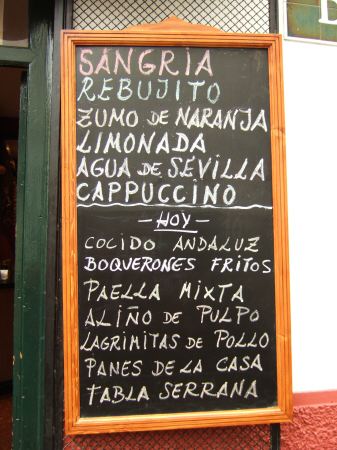 SANGRIA
REBUJITO
ZUMO DE NARANJA
LIMONADA
AGUA DE SEVILLA
CAPPUCCINO
- HOY -
COCIDO ANDALUZ
BOQUERONES FRITOS
PAELLA MIXTA
ALIÑO DE PULPO
LAGRIMITAS DE POLLO
PANES DE LA CASA
TABLA SERRANA